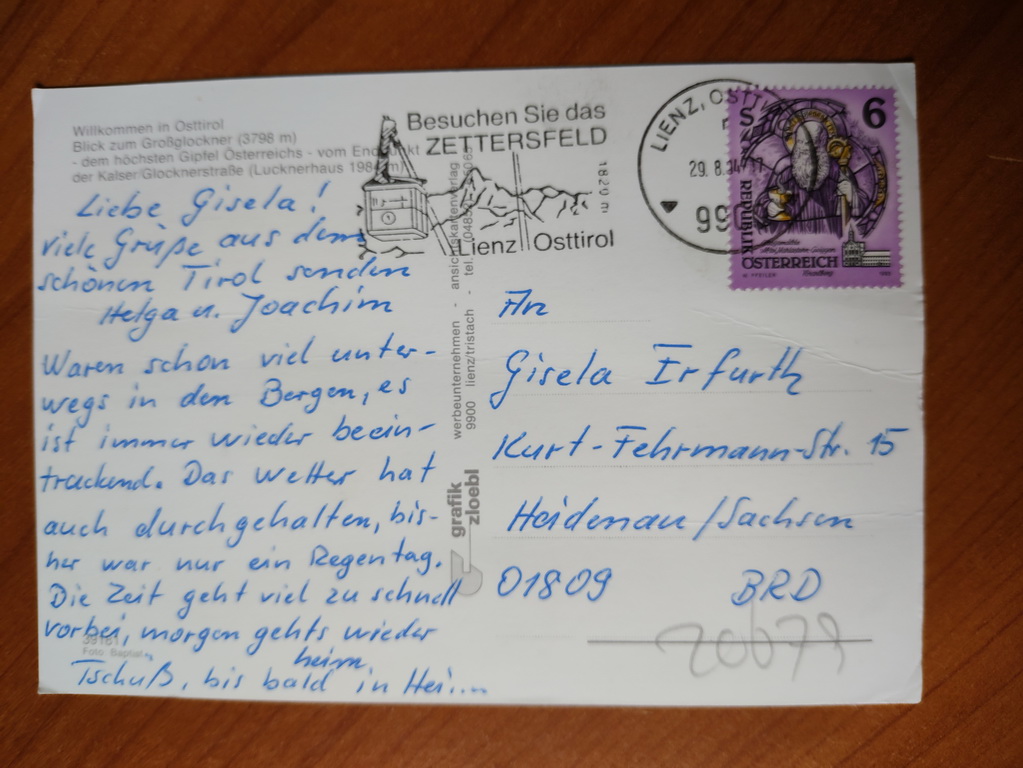 Willkommen in Osttirol
Blick zum Großglockner (3798 m)
- dem höchsten Gipfel Österreichs - vom
der Kalser/Glocknerstraße (Lucknerhaus 1984 m)
Liebe Gisela!
viele Grüße aus dem
schönen Tirol senden
Helga u. Joachim
Waren schon viel unter-
wegs in den Bergen, es
ist immer wieder beein-
truckend. Das Wetter hat
auch durchgehalten, bis-
her war nur ein Regentag.
Die Zeit geht viel zu schnell
vorbei, morgen gehts wieder
heim.
Tschüß, bis bald in Hei....
Foto: Baptist
werbeunternehmen - ansichtskartenverlag
9900 lienz/tristach - tel.
grafik
zloebl
Besuchen Sie das
ZETTERSFELD
1820 m
Lienz Osttirol
LIENZ, OSTTI
29. 8. 94
990
S 6
REPUBLIK
ÖSTERREICH
An
Gisela Erfurth
Kurt-Fehrmann-Str. 15
Heidenau/Sachsen
01809 BRD